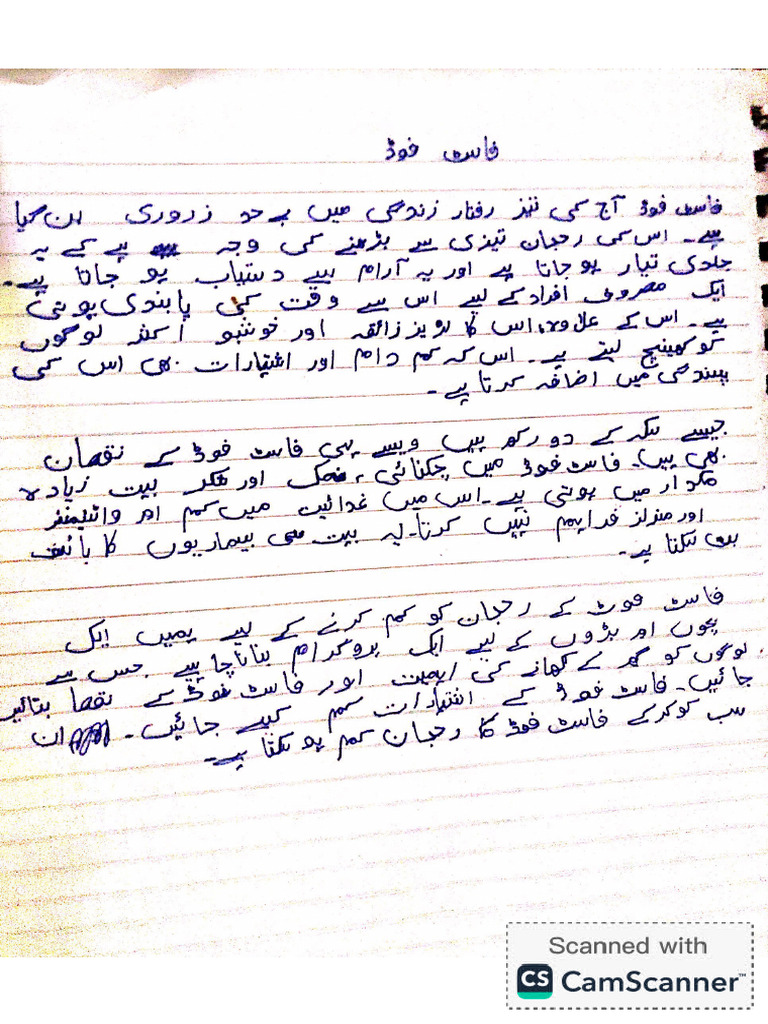 فاسٹ فوڈ
فاسٹ فوڈ آج کی تیز رفتار زندگی میں بے حد زروری بن گیا
ہے۔ اس کی رجہان تیزی سے بڑھنے کی وجہ ہے کے یہ
جلدی تیار ہو جاتا ہے اور یہ آرام سے دستیاب ہو جاتا ہے۔
ایک مصروف افراد کے لیے اس سے وقت کی پابندی ہوتی
ہے۔ اس کے علاوہ، اس کا زائقہ اور خوشبو اکثر لوگوں
کو کھینچ لیتے ہے۔ اس کہ کم دام اور اشتہارات بھی اس کی
پسندگی میں اضافہ کرتا ہے۔
جیسے سکہ کے دو رکھ ہیں ویسے ہی فاسٹ فوڈ کے نقصان
بھی ہیں۔ فاسٹ فوڈ میں چکنائی، نمک اور شکر بہت زیادہ
مکدار میں ہوتی ہے۔ اس میں غدائیت میں کم اور وائٹمنز
اور منرلز فراہم نہیں کرتا۔ یہ بہت سی بیماریوں کا بائث
بن سکتا ہے۔
فاسٹ فوٹ کے رجہان کو کم کرنے کے لیے ہمیں ایک
بچوں اور بڑوں کے لیے ایک پروگرام بنانا چاہیے جس سے
لوگوں کو گھر کے کھانے کی اہمیت اور فاسٹ فوڈ کے نقصا بتائیں
جائیں۔ فاسٹ فوڈ کے اشتہارات کم کیے جائیں۔ ان
سب کو کرکے فاسٹ فوڈ کا رجہان کم ہو سکتا ہے۔
Scanned with
CS CamScanner™